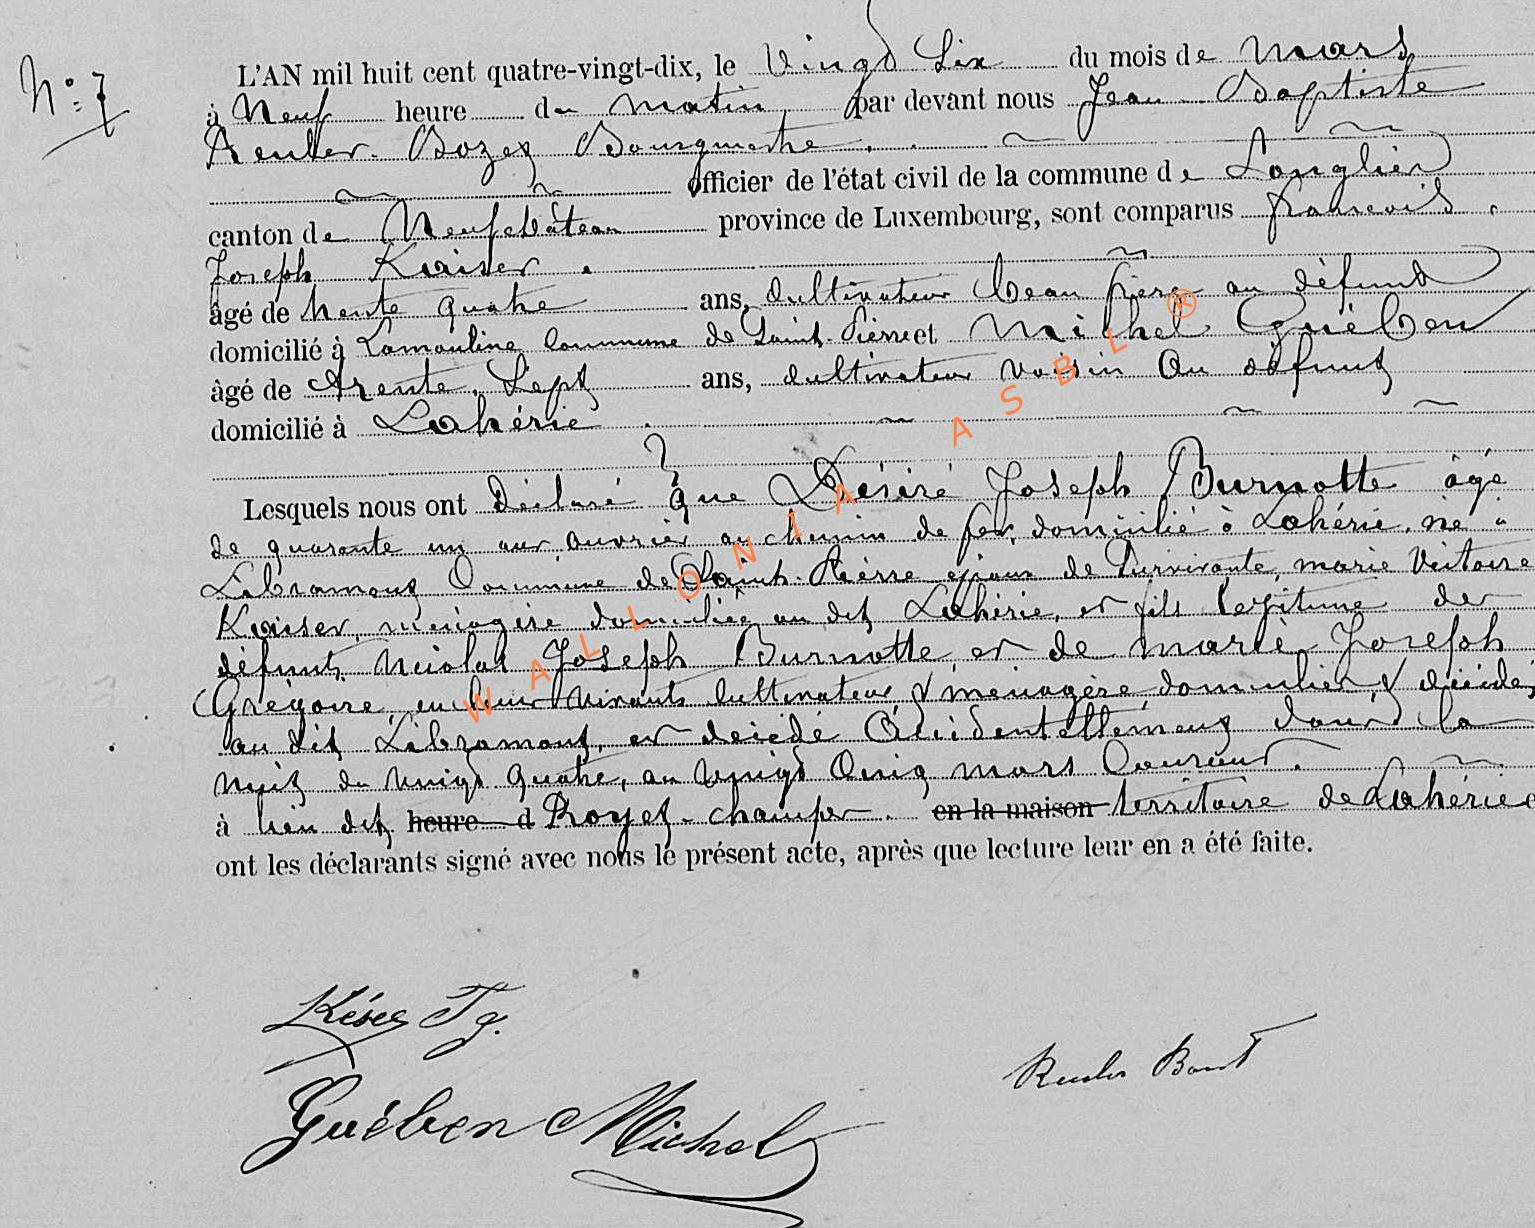 N° 7
L'AN mil huit cent quatre-vingt-dix, le Vingt Six du mois de Mars
à Neuf heure du matin par devant nous Jean Baptiste
Reuter Bozet Bourgmestre.
officier de l'état civil de la commune de Longlier
canton de Neufchâteau province de Luxembourg, sont comparus francois
Joseph Kaiser.
âgé de trente quatre ans, Cultivateur beau frère au défunt
domicilié à Lamouline Commune de Saint-Pierre et Michel Guében
âgé de trente Sept ans, cultivateur voisin Au défunt
domicilié à Lahérie.
Lesquels nous ont déclaré que Désiré Joseph Burnotte âgé
de quarante un ans, ouvrier au chemin de fer, domicilié à Lahérie, né à
Libramont Commune de Saint-Pierre époux de Survivante, marie Victoire
Kaiser, ménagère domiciliée au dit Lahérie, et fils légitime des
défunts Nicolas Joseph Burnotte et de marie Joseph
Grégoire, en leur vivants cultivateur & ménagère domiciliés & décédés
au dit Libramont, est décédé Accidentellement dans la
nuit du vingt quatre, au vingt Cinq mars Courant.
à lieu dit heure d Royet-champs en la maison territoire de Lahérie e
ont les déclarants signé avec nous le présent acte, après que lecture leur en a été faite.
Késer J
Guében Michel
Reuter Bozet
WALLONIA ASBL ®